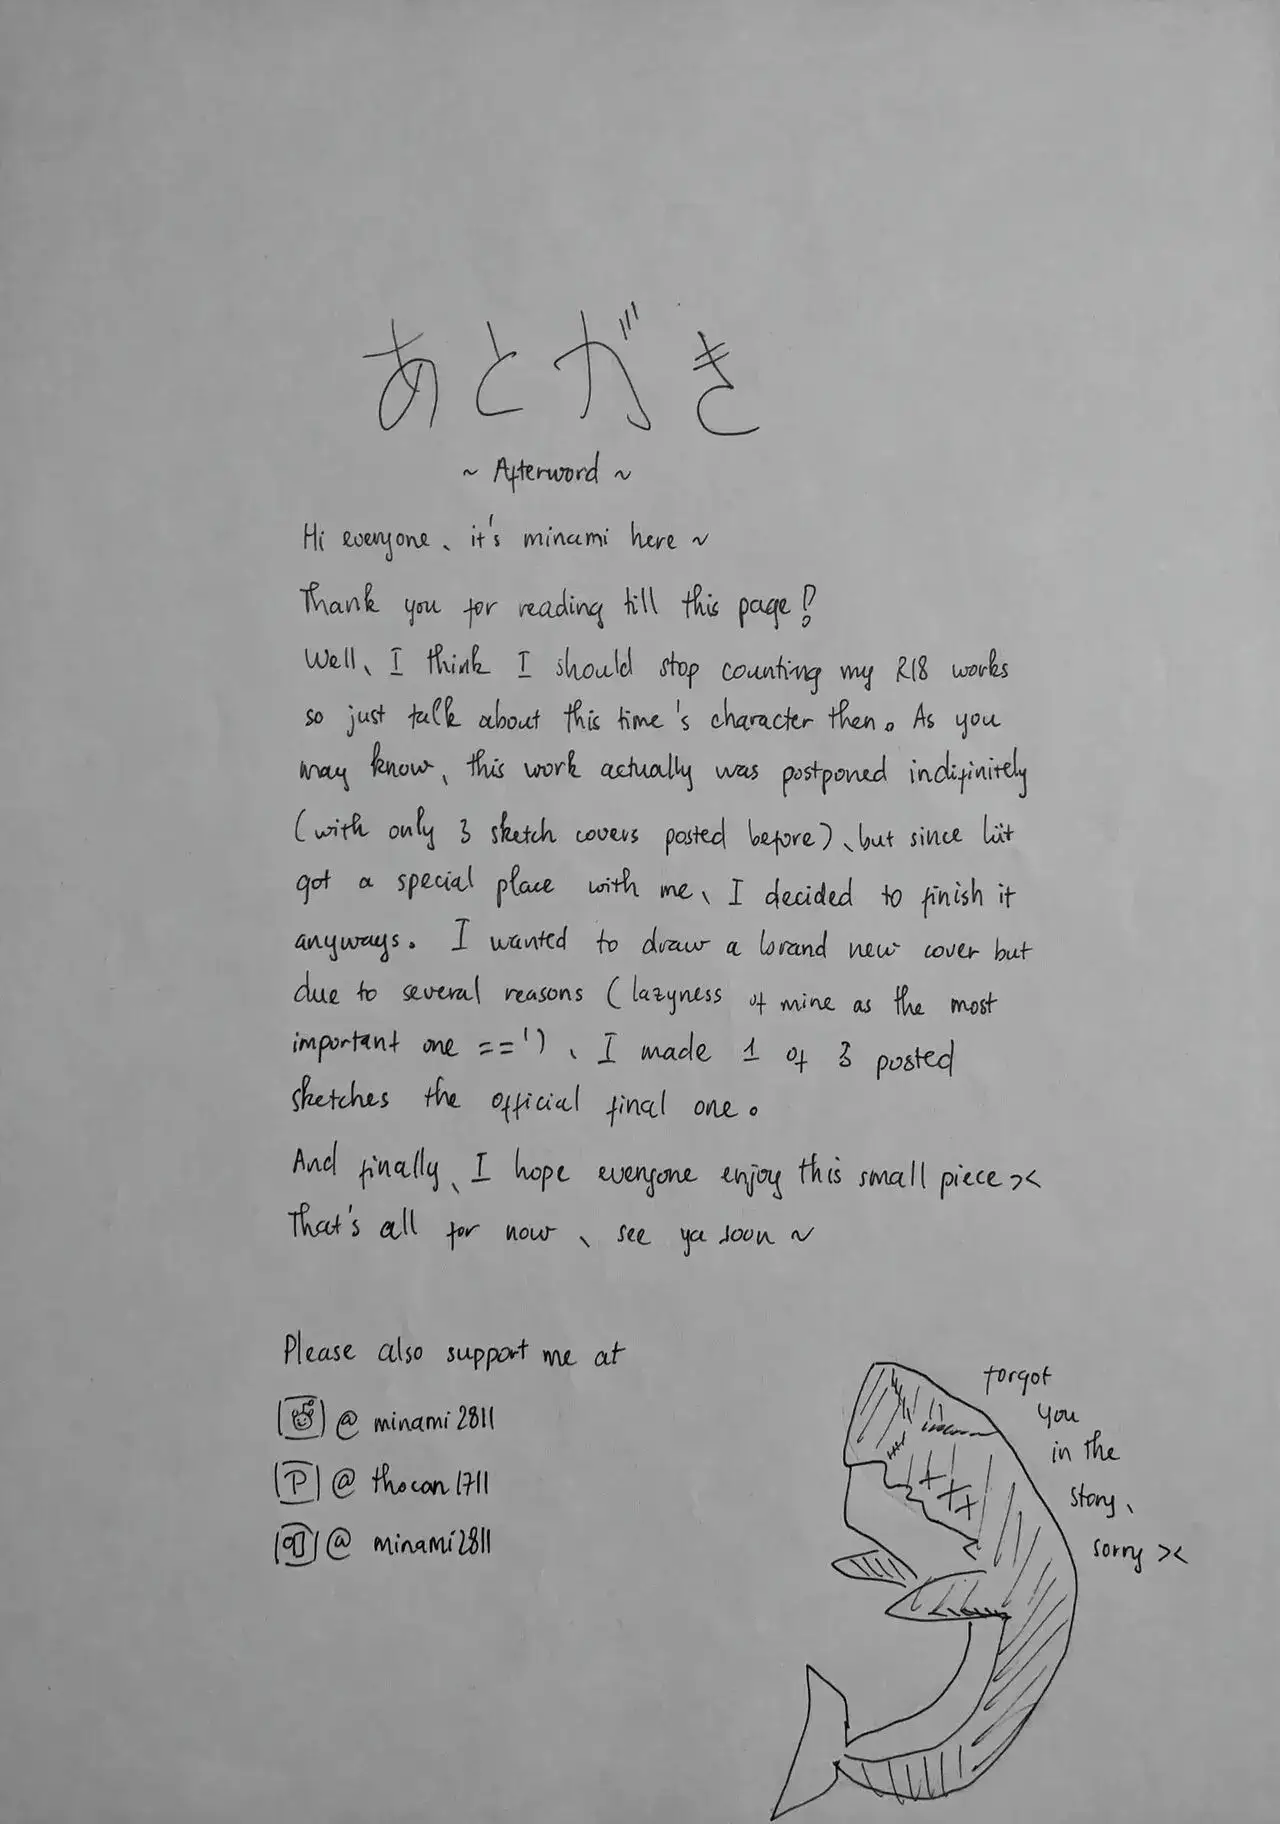 あとがき
~ Afterword ~
Hi everyone、it's minami here ~
Thank you for reading till this page!
Well、I think I should stop counting my R18 works
so just talk about this time's character then。As you
may know、this work actually was postponed indifinitely
(with only 3 sketch covers posted before)、but since lüt
got a special place with me、I decided to finish it
anyways。I wanted to draw a brand new cover but
due to several reasons (lazyness of mine as the most
important one ==')、I made 1 of 3 posted
sketches the official final one。
And finally、I hope everyone enjoy this small piece ><
That's all for now、see ya soon ~
Please also support me at
@ minami2811
P @ thocan1711
@ minami2811
forgot
you
in the
story、
sorry ><